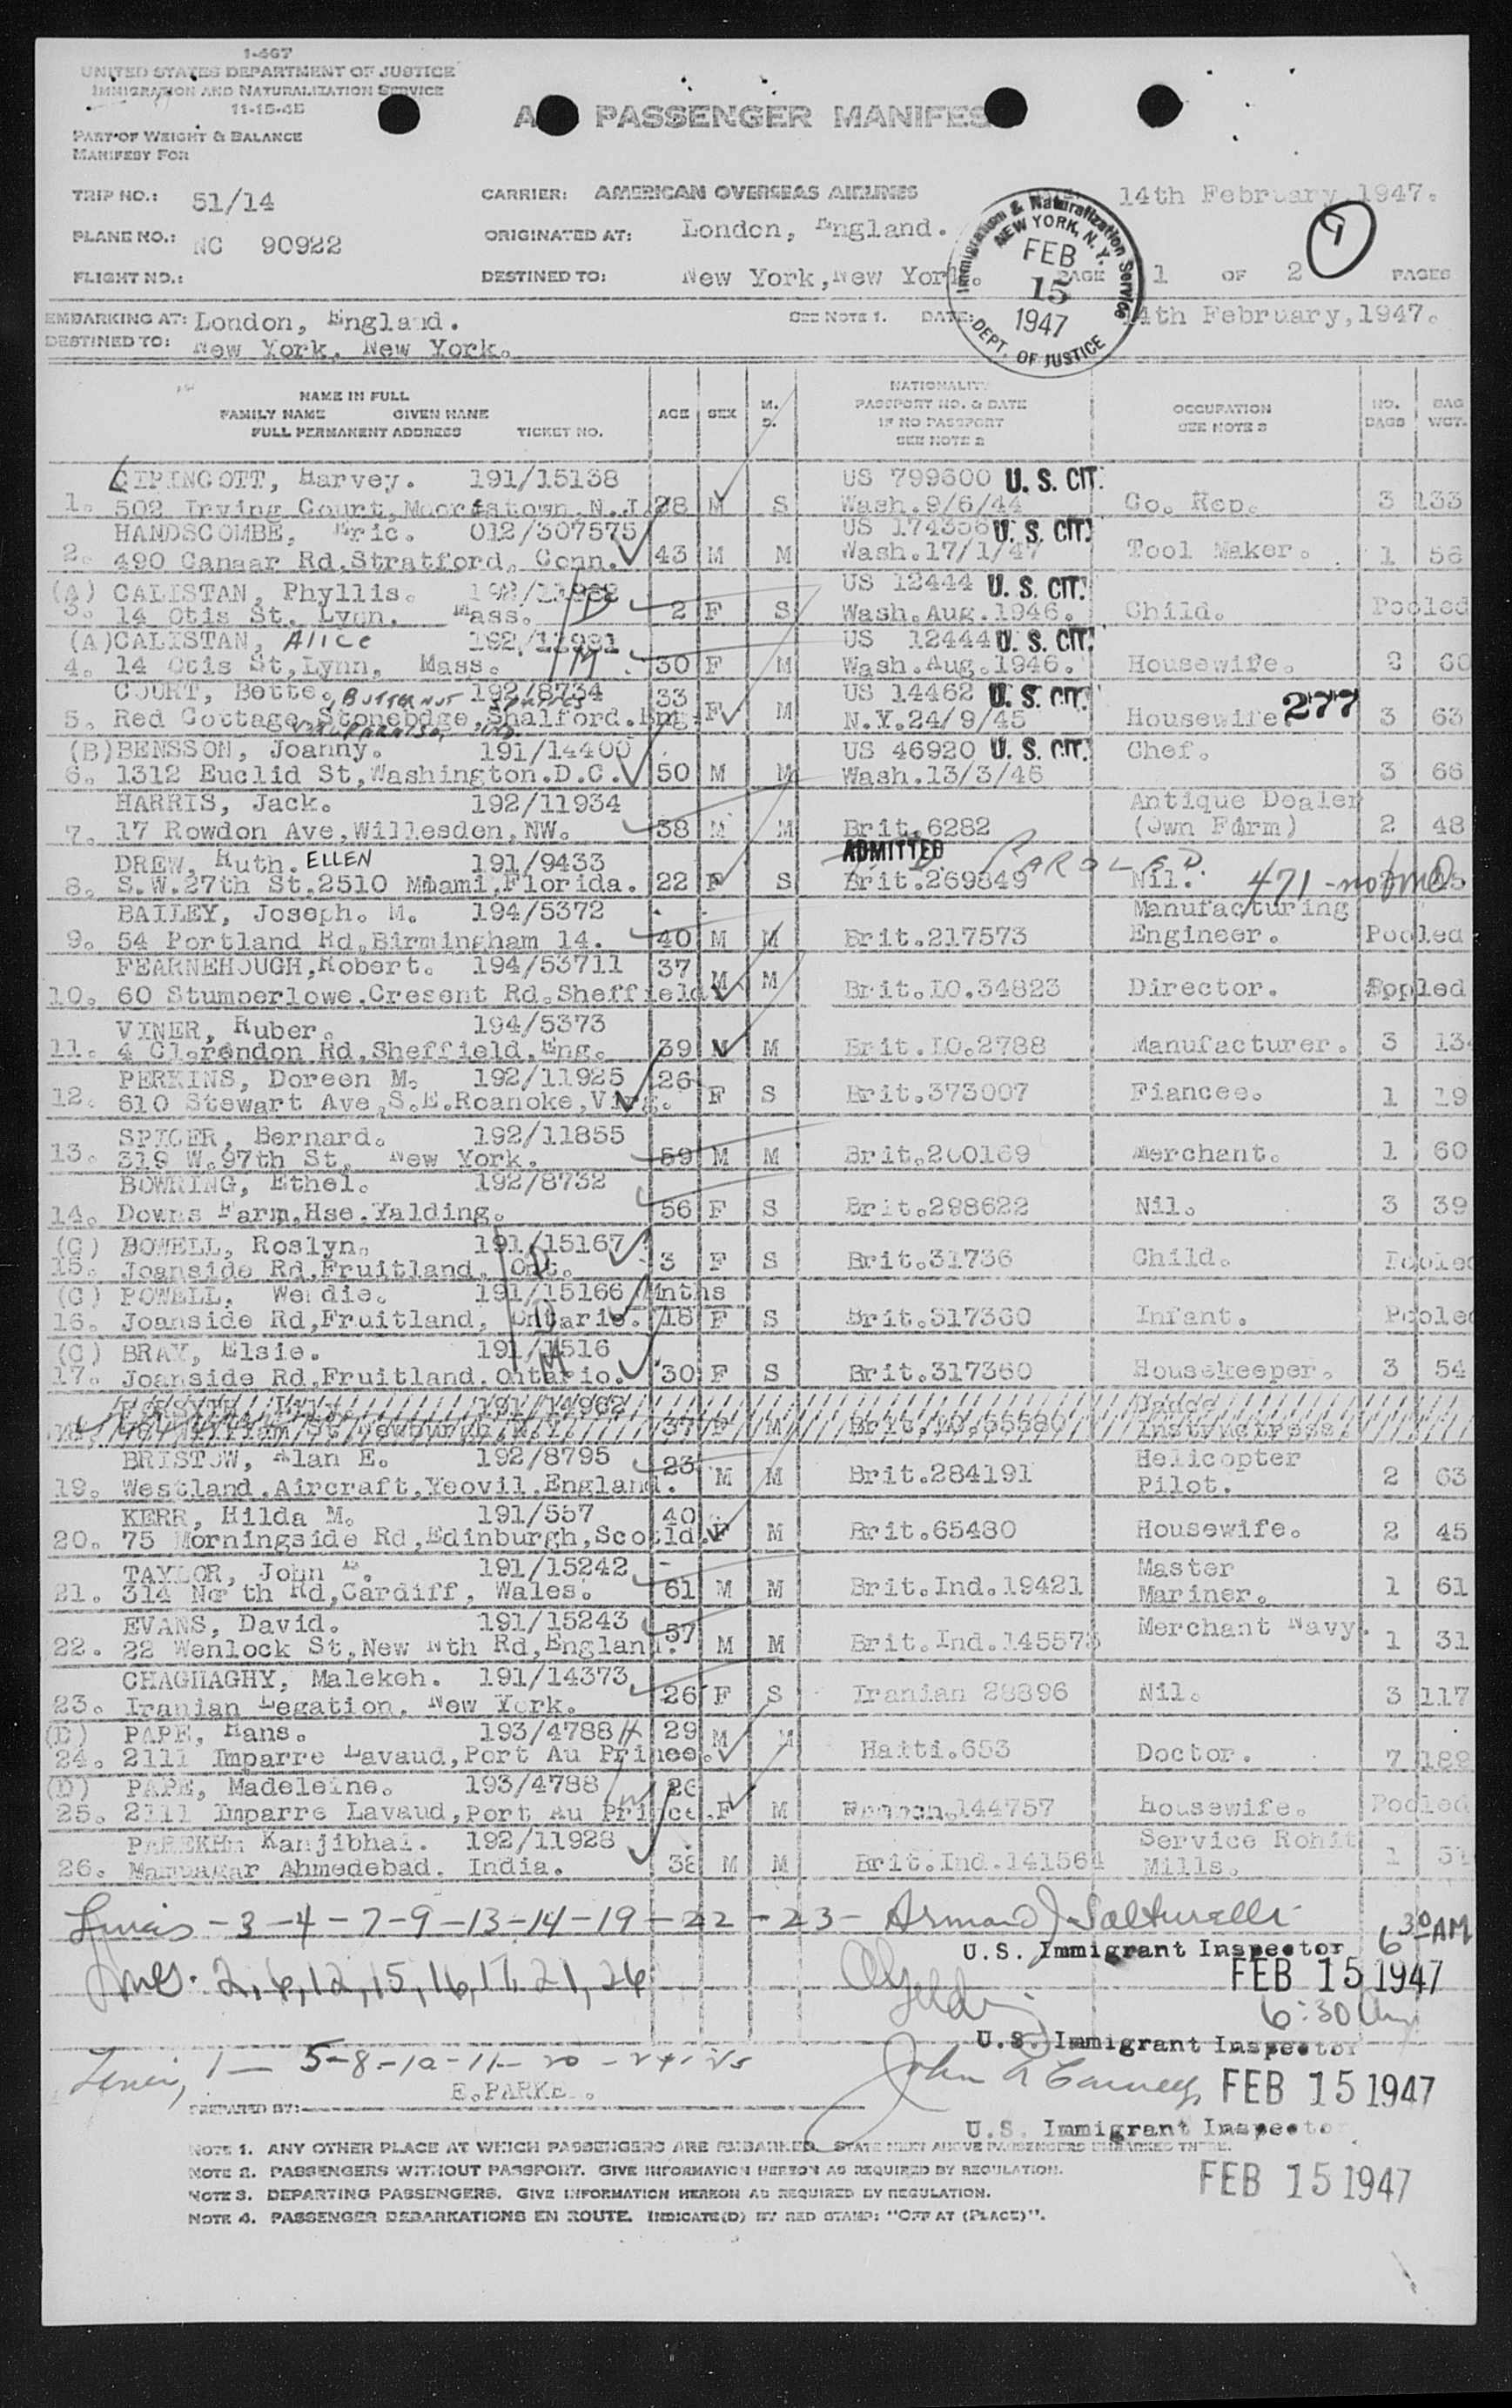 1-467
UNITED STATES DEPARTMENT OF JUSTICE
IMMIGRATION AND NATURALIZATION SERVICE
11-15-45
PART OF WEIGHT & BALANCE
MANIFEST FOR
PASSENGER MANIFES
TRIP NO.: 51/14
CARRIER: AMERICAN OVERSEAS AIRLINES
14th February 1947.
PLANE NO.: NC 90922
ORIGINATED AT: London, England.
FLIGHT NO.:
DESTINED TO: New York, New York.
PAGE 1 OF 2 PAGES
9
Immigration & Naturalization Service
NEW YORK, N. Y.
FEB
15
1947
DEPT. OF JUSTICE
EMBARKING AT: London, England.
SEE NOTE 1. DATE: 14th February, 1947.
DESTINED TO: New York, New York.
NAME IN FULL
FAMILY NAME GIVEN NAME
FULL PERMANENT ADDRESS TICKET NO.
AGE SEX M. S.
NATIONALITY
PASSPORT NO. & DATE
IF NO PASSPORT
SEE NOTE 2
OCCUPATION
SEE NOTE 3
NO. BAGS
BAG WGT.
Harvey. 191/15138 US 799600 U. S. CIT.
1. 502 Irving Court, Moorestown, N.J. 28 M S Wash.9/6/44 Co. Rep. 3 133
HANDSCOMBE, Eric. 012/307575 US 174356 U. S. CIT.
2. 490 Canaar Rd.Stratford, Conn. 43 M M Wash.17/1/47 Tool Maker. 1 56
(A) CALISTAN, Phyllis. US 12444 U. S. CIT.
3. 14 Otis St. Lynn. Mass. D 2 F S Wash.Aug.1946. Child. Pooled
(A) CALISTAN, Alice 192/11981 US 12444 U. S. CIT.
4. 14 Otis St, Lynn, Mass. M 30 F M Wash.Aug.1946. Housewife. 2 60
COURT, Bette. BUTTERNUT 192/8734 33 US 14462 U. S. CIT.
5. Red Cottage, Stonebdge, Shalford. Eng. F M N.Y.24/9/45 Housewife 277 3 63
(B) BENSSON, Joanny. 191/14400 US 46920 U. S. CIT. Chef.
6. 1312 Euclid St, Washington.D.C. 50 M M Wash.13/3/46 3 66
HARRIS, Jack. 192/11934 Antique Dealer
7. 17 Rowdon Ave, Willesden, NW. 38 M M Brit. 6282 (Own Firm) 2 48
DREW, Ruth. ELLEN 191/9433 ADMITTED PAROLED
8. S.W.27th St.2510 Miami, Florida. 22 F S Brit.269849 Nil. 471-
BAILEY, Joseph. M. 194/5372 Manufacturing
9. 54 Portland Rd, Birmingham 14. 40 M M Brit.217573 Engineer. Pooled
FEARNEHOUGH, Robert. 194/53711 37
10. 60 Stumperlowe.Cresent Rd.Sheffield M M Brit.IO.34823 Director. Pooled
VINER, Ruber. 194/5373
11. 4 Clarendon Rd, Sheffield. Eng. 39 M M Brit.IO.2788 Manufacturer. 3 13
PERKINS, Doreen M. 192/11925 26
12. 610 Stewart Ave, S.E.Roanoke, Virg. F S Brit.373007 Fiancee. 1 19
SPICER, Bernard. 192/11855
13. 319 W.97th St. New York. 59 M M Brit.200169 Merchant. 1 60
BOWRING, Ethel. 192/8732
14. Downs Farm, Hse.Yalding. 56 F S Brit.298622 Nil. 3 39
(C) BOWELL, Roslyn. 191/15167
15. Joanside Rd.Fruitland. Ont. D 3 F S Brit.31736 Child. Pooled
(C) POWELL, Wendie. 191/15166 Mnths
16. Joanside Rd, Fruitland, Ontario. D 18 F S Brit.317360 Infant. Pooled
(C) BRAY, Elsie. 191/1516
17. Joanside Rd, Fruitland. Ontario. M 30 F S Brit.317360 Housekeeper. 3 54
191/14962 Dance
William St, Newburgh, N.Y. 37 F M Brit.IO.55580 Instructress.
BRISTOW, Alan E. 192/8795 23 Helicopter
19. Westland.Aircraft, Yeovil.England. M M Brit.284191 Pilot. 2 63
KERR, Hilda M. 191/557 40
20. 75 Morningside Rd, Edinburgh, Scotld. F M Brit.65480 Housewife. 2 45
TAYLOR, John 191/15242 Master
21. 314 North Rd, Cardiff, Wales. 61 M M Brit.Ind.19421 Mariner. 1 61
EVANS, David. 191/15243 57 Merchant Navy.
22. 22 Wenlock St, New Nth Rd, England. M M Brit.Ind.145573 1 31
CHAGHAGHY, Malekeh. 191/14373
23. Iranian Legation, New York. 26 F S Iranian 28896 Nil. 3 117
(D) PAPE, Hans. 193/4788 H 29
24. 2111 Imparre Lavaud, Port Au Prince. M M Haiti.653 Doctor. 7 189
(D) PAPE, Madeleine. 193/4788 W 26
25. 2111 Imparre Lavaud, Port Au Prince. F M 144757 Housewife. Pooled
PAREKH: Kanjibhai. 192/11928 Service Rohit
26. Ahmedebad. India. 38 M M Brit.Ind.141564 Mills. 1 51
-3-4-7-9-13-14-19-22-23-
U.S. Immigrant Inspector 6 30 AM
FEB 15 1947
2, 6, 12, 15, 16, 17, 21, 26
6:30 Am
U.S. Immigrant Inspector
1-5-8-10-11-20-24-25
John A
FEB 15 1947
E.PARKE .
PREPARED BY:
U.S. Immigrant Inspector
FEB 15 1947
NOTE 1. ANY OTHER PLACE AT WHICH PASSENGERS ARE EMBARKED. STATE NEXT ABOVE PASSENGERS EMBARKED THERE.
NOTE 2. PASSENGERS WITHOUT PASSPORT. GIVE INFORMATION HEREON AS REQUIRED BY REGULATION.
NOTE 3. DEPARTING PASSENGERS. GIVE INFORMATION HEREON AS REQUIRED BY REGULATION.
NOTE 4. PASSENGER DEBARKATIONS EN ROUTE. INDICATE(D) BY RED STAMP: "OFF AT (PLACE)".